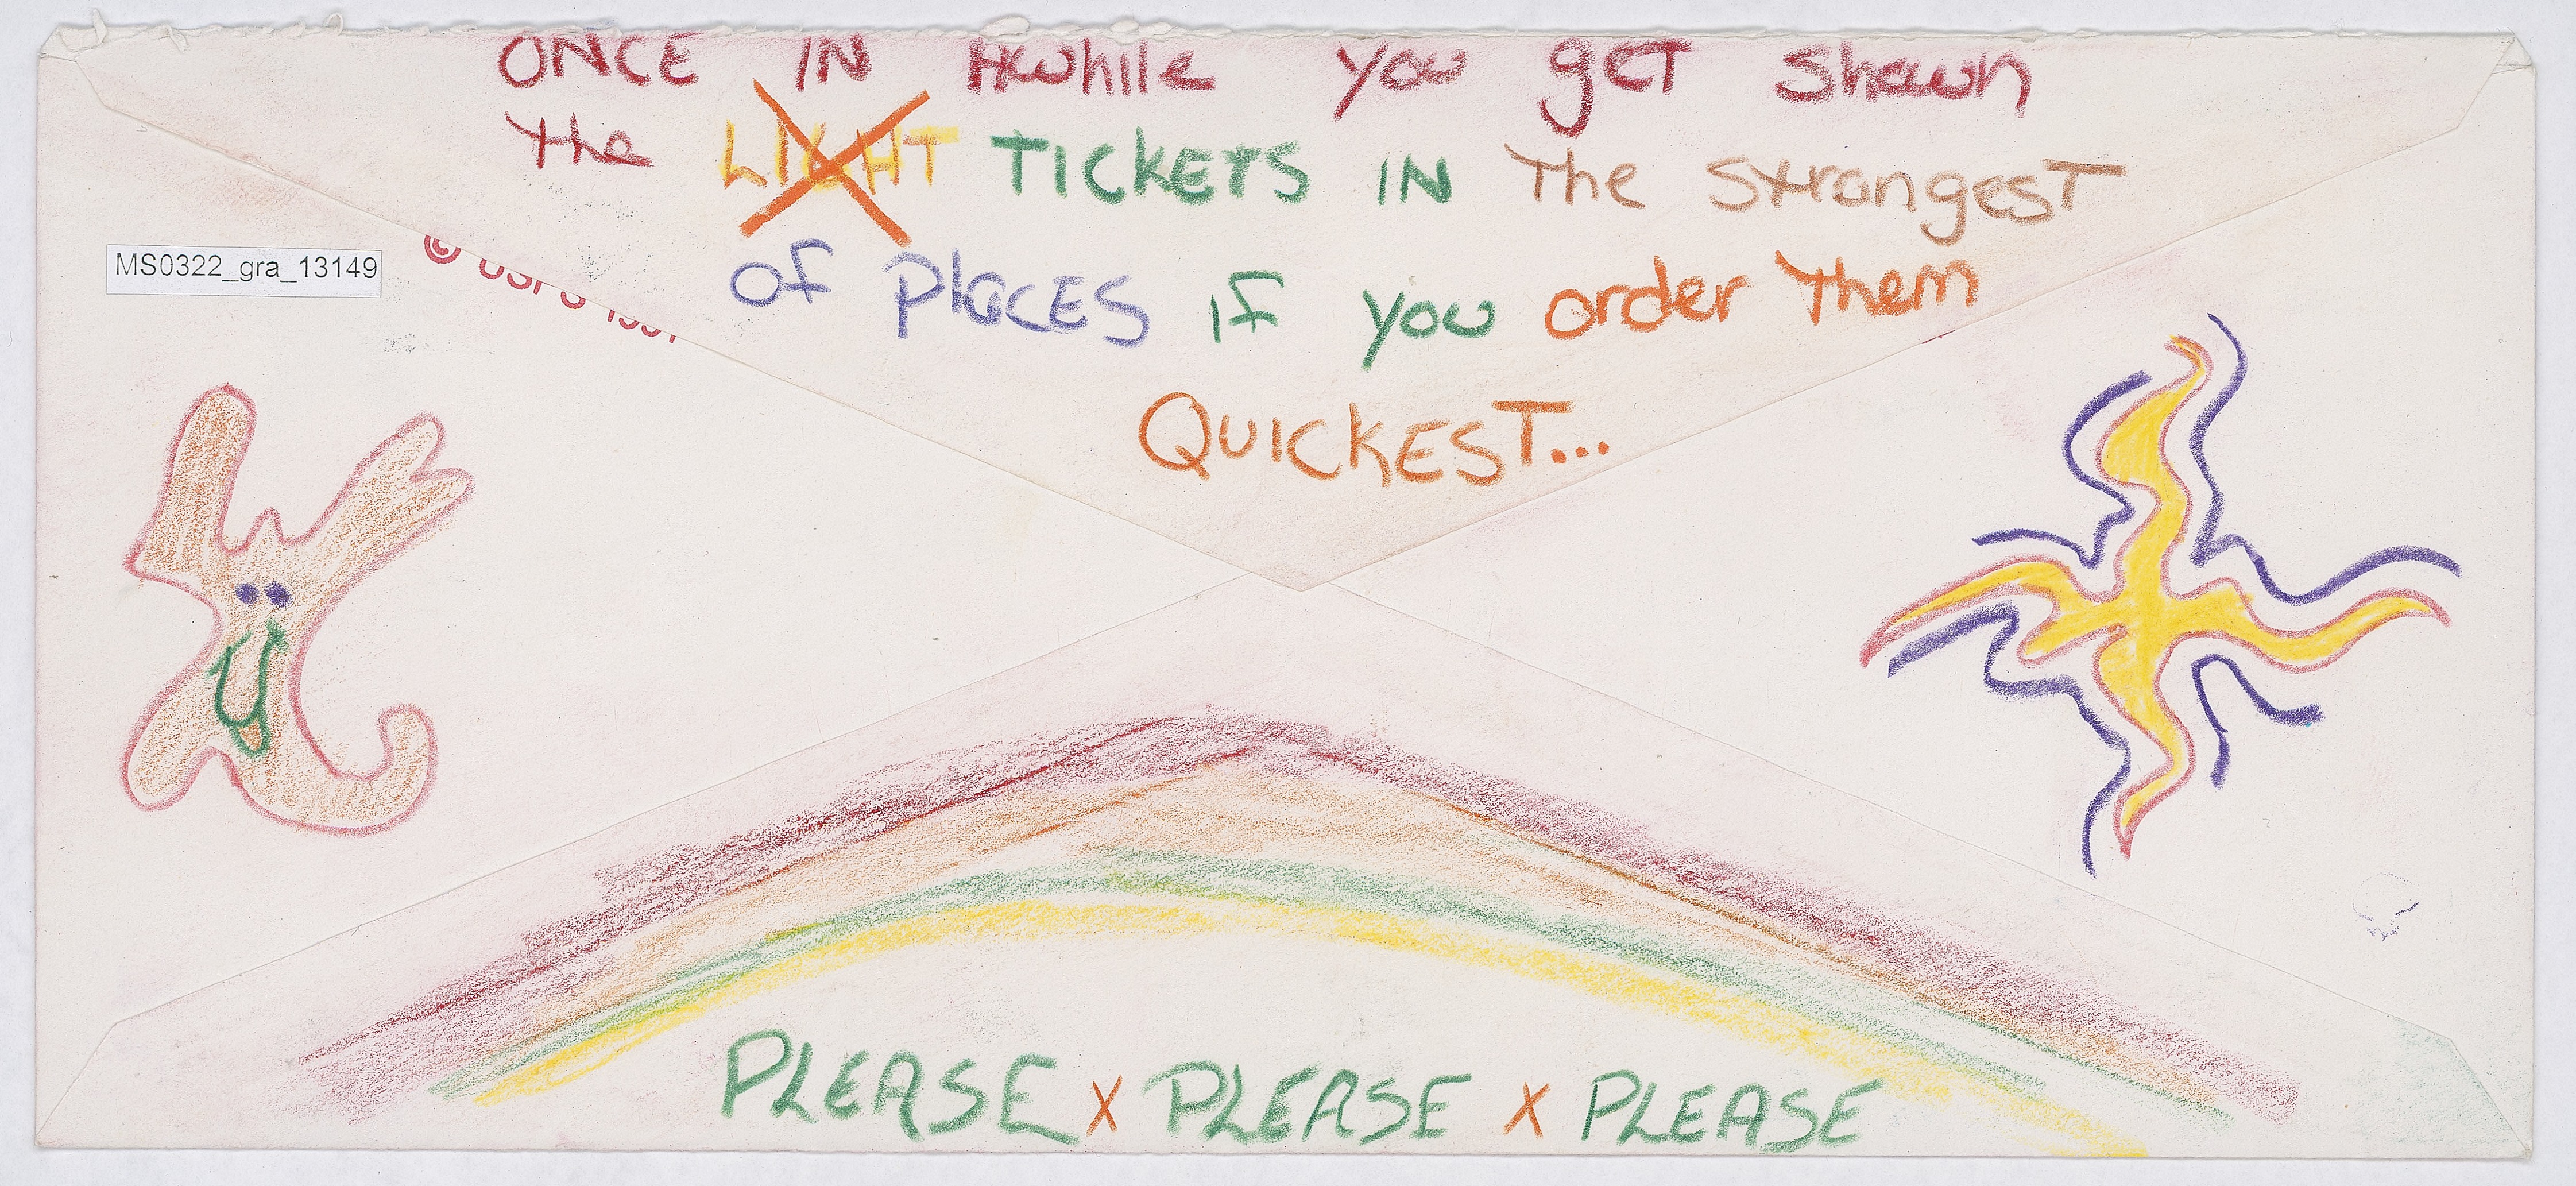 ONCE IN Awhile YOU geT Shown
the LIGHT TICKETS IN The STrangeST
of PlaCES If you order Them
MS0322_gra_13149
© USPS 1991
QUICKEST...
PLEASE x PLEASE x PLEASE